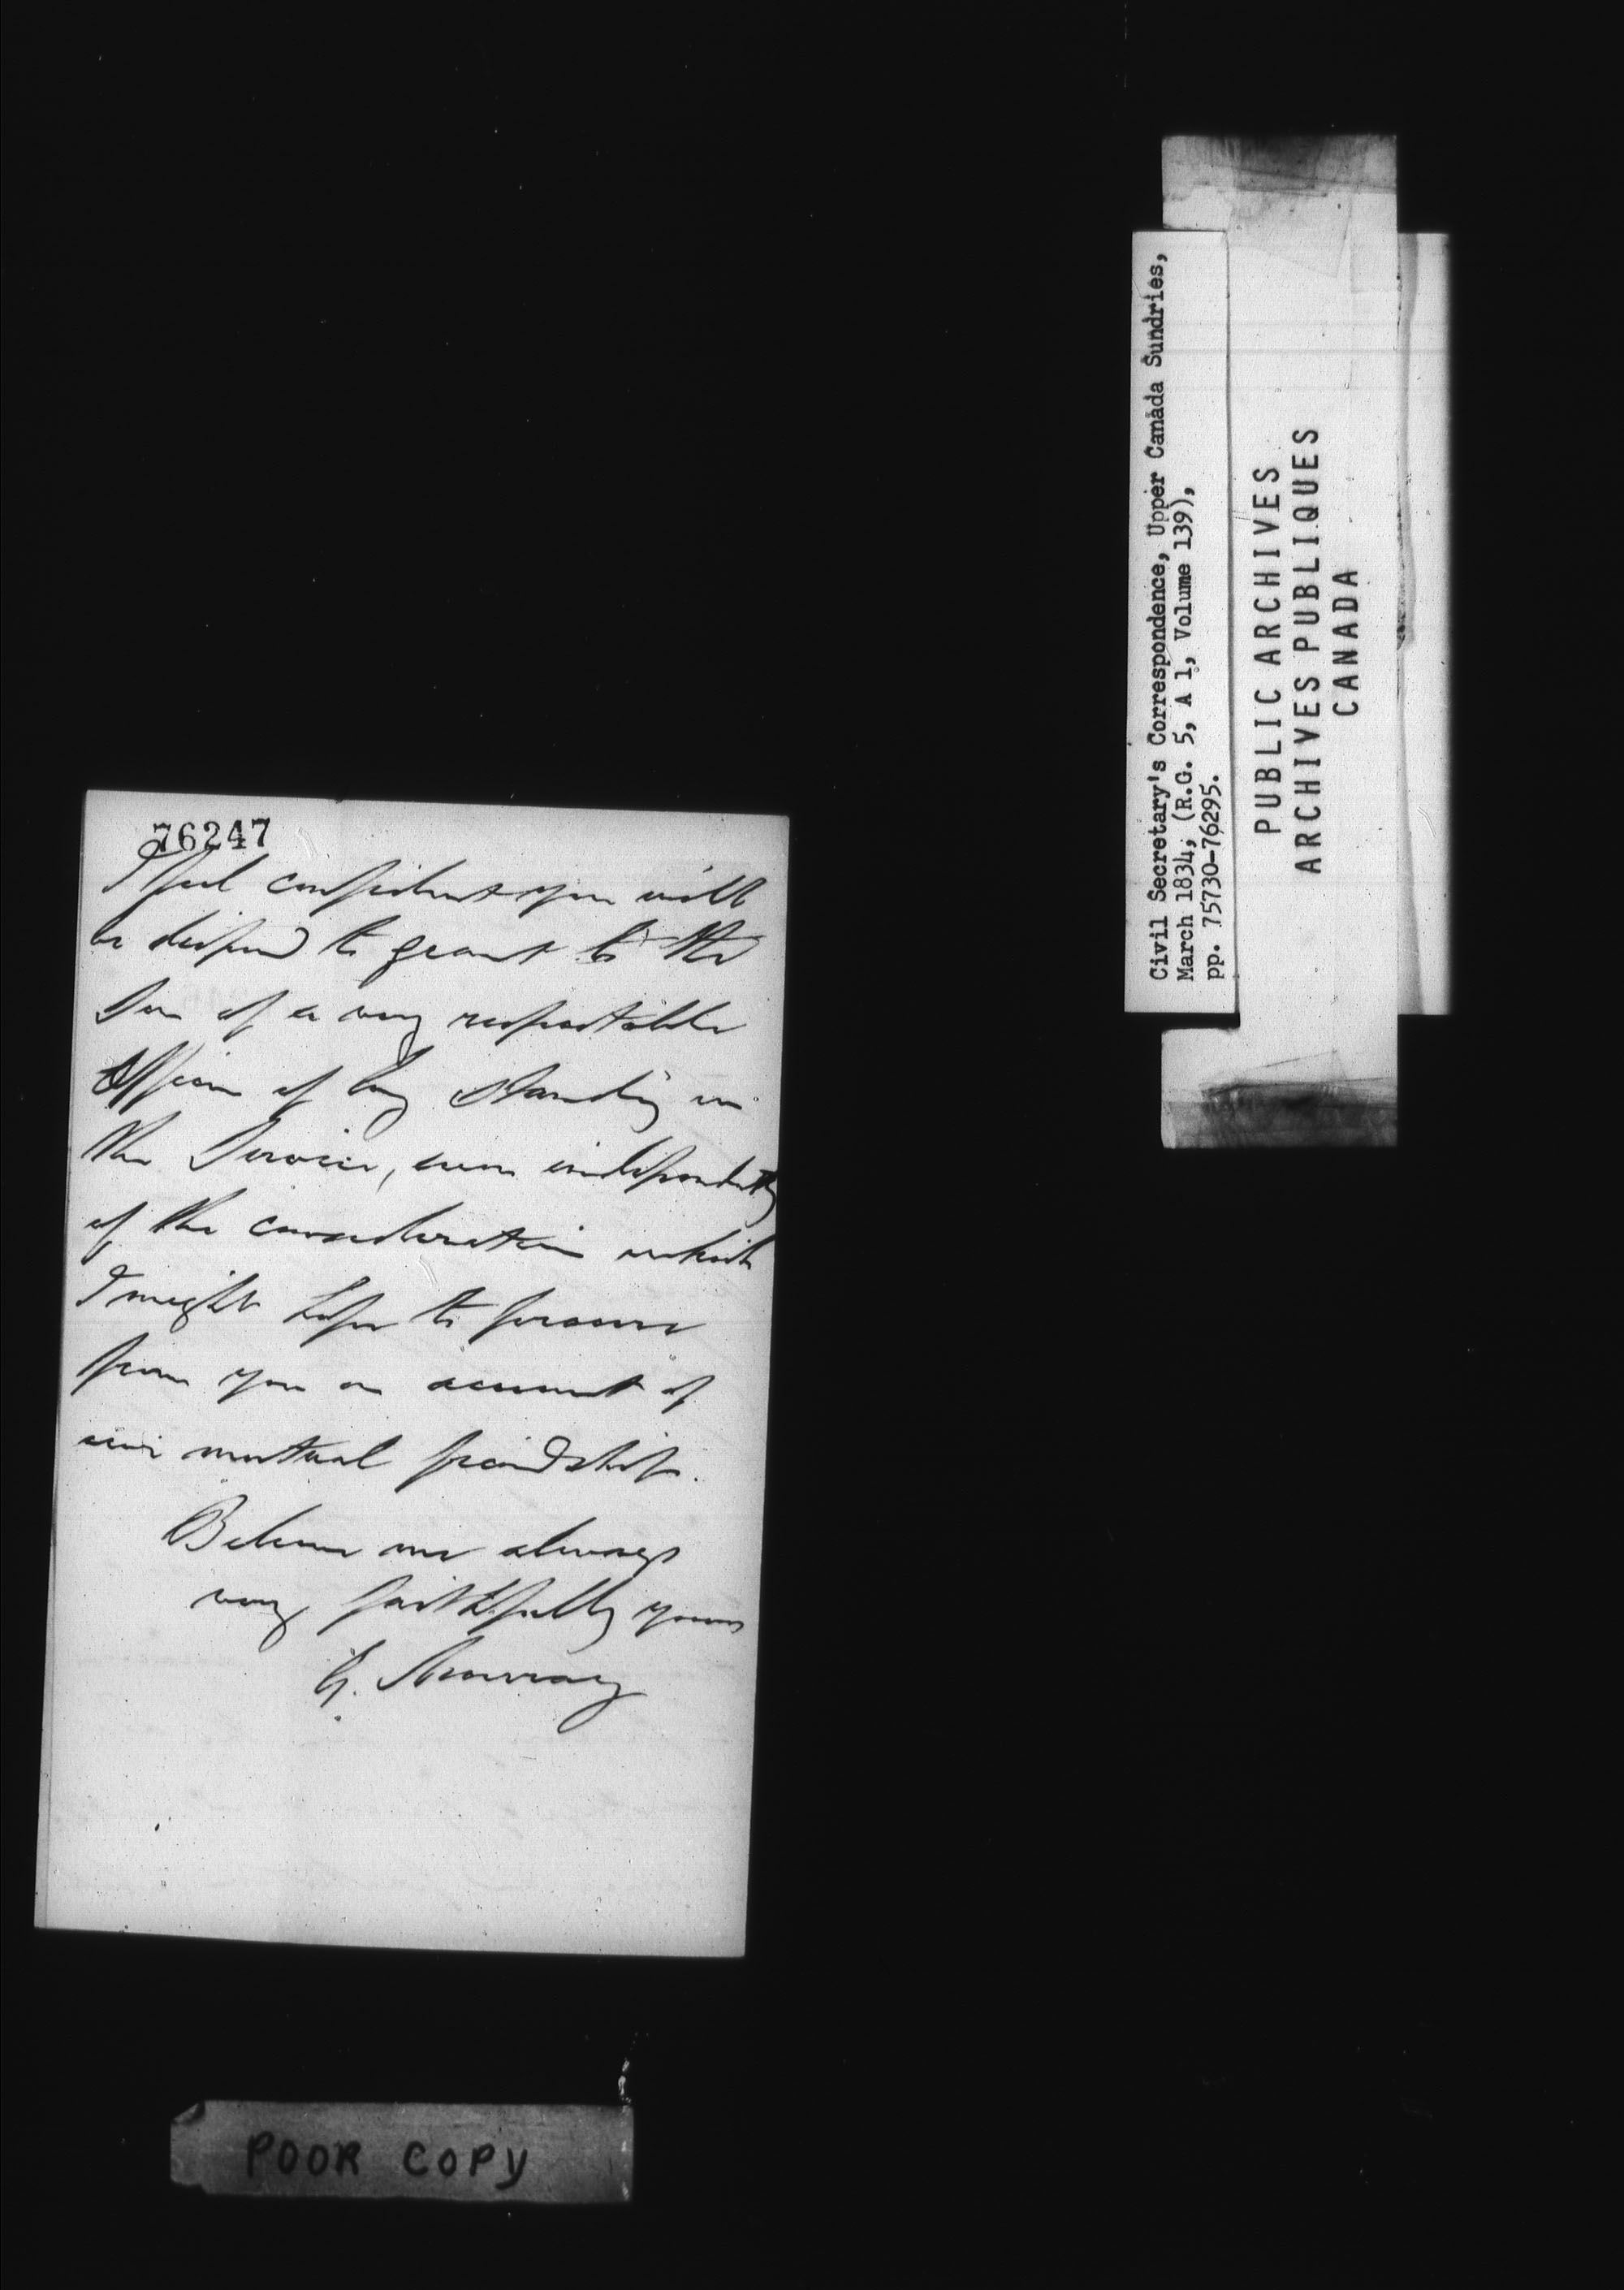 76247
I feel confident you will
be disposed to grant to the
Son of a very respectable
Officer of long standing in
the Service, even independently
of the consideration which
I might hope to procure
from you on account of
our mutual friendship.
Believe me always
very faithfully yours
G. Murray
POOR COPY
Civil Secretary's Correspondence, Upper Canada Sundries,
March 1834; (R.G. 5, A 1, Volume 139),
pp. 75730-76295.
PUBLIC ARCHIVES
ARCHIVES PUBLIQUES
CANADA